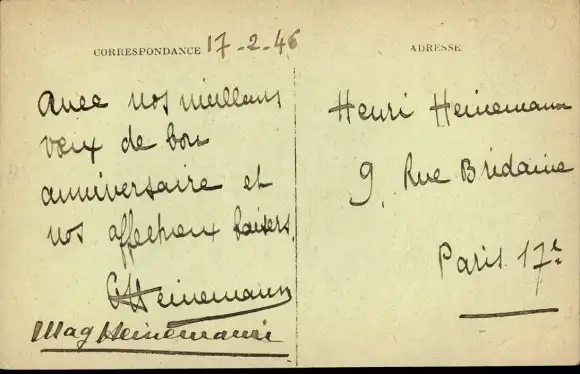 CORRESPONDANCE 17-2-46
Avec nos meilleurs
voeux de bon
anniversaire et
nos affectueux baisers
GHeinemann
Mag Heinemann
ADRESSE
Henri Heinemann
9, Rue Bridaine
Paris 17e